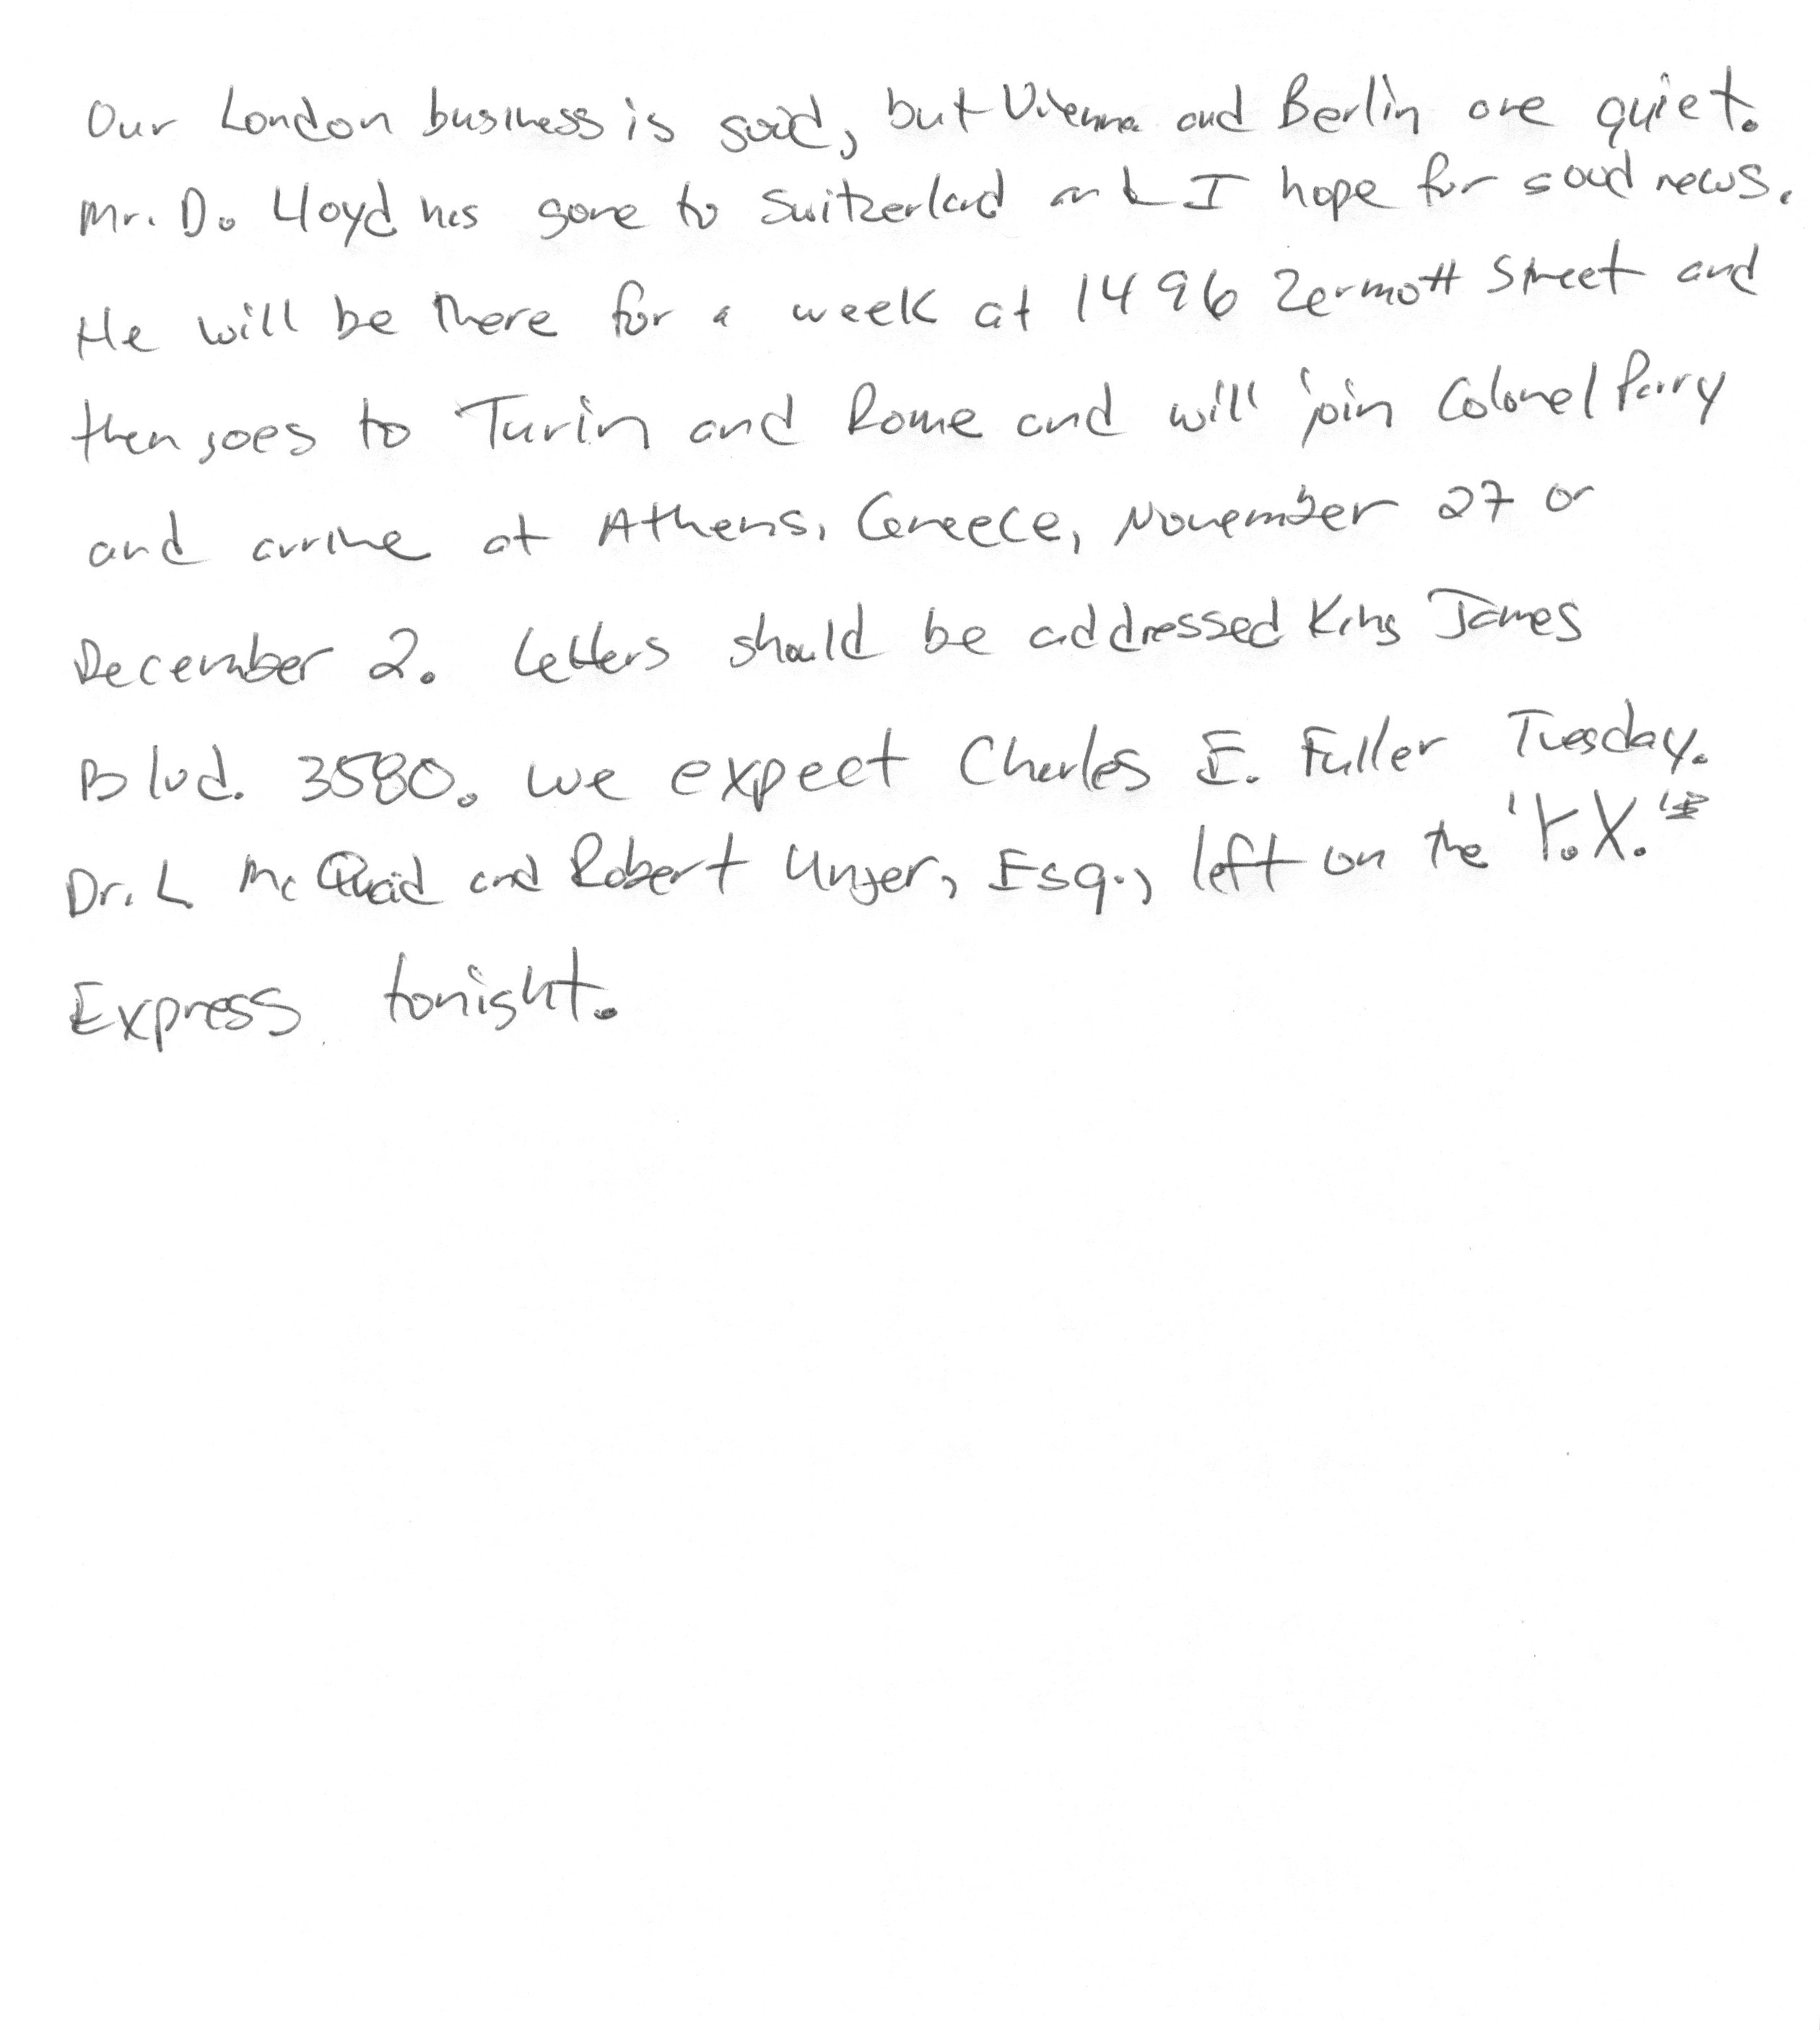 Our London business is good, but Vienna and Berlin are quiet.
Mr. D. Lloyd has gone to Switzerland and I hope for good news.
He will be there for a week at 1496 Zermott Street and
then goes to Turin and Rome and will join Colonel Parry
and arrive at Athens, Greece, November 27 or
December 2. Letters should be addressed King James
Blvd. 3580. We expect Charles E. Fuller Tuesday.
Dr. L McQuaid and Robert Unger, Esq., left on the 'Y.X.'
Express tonight.